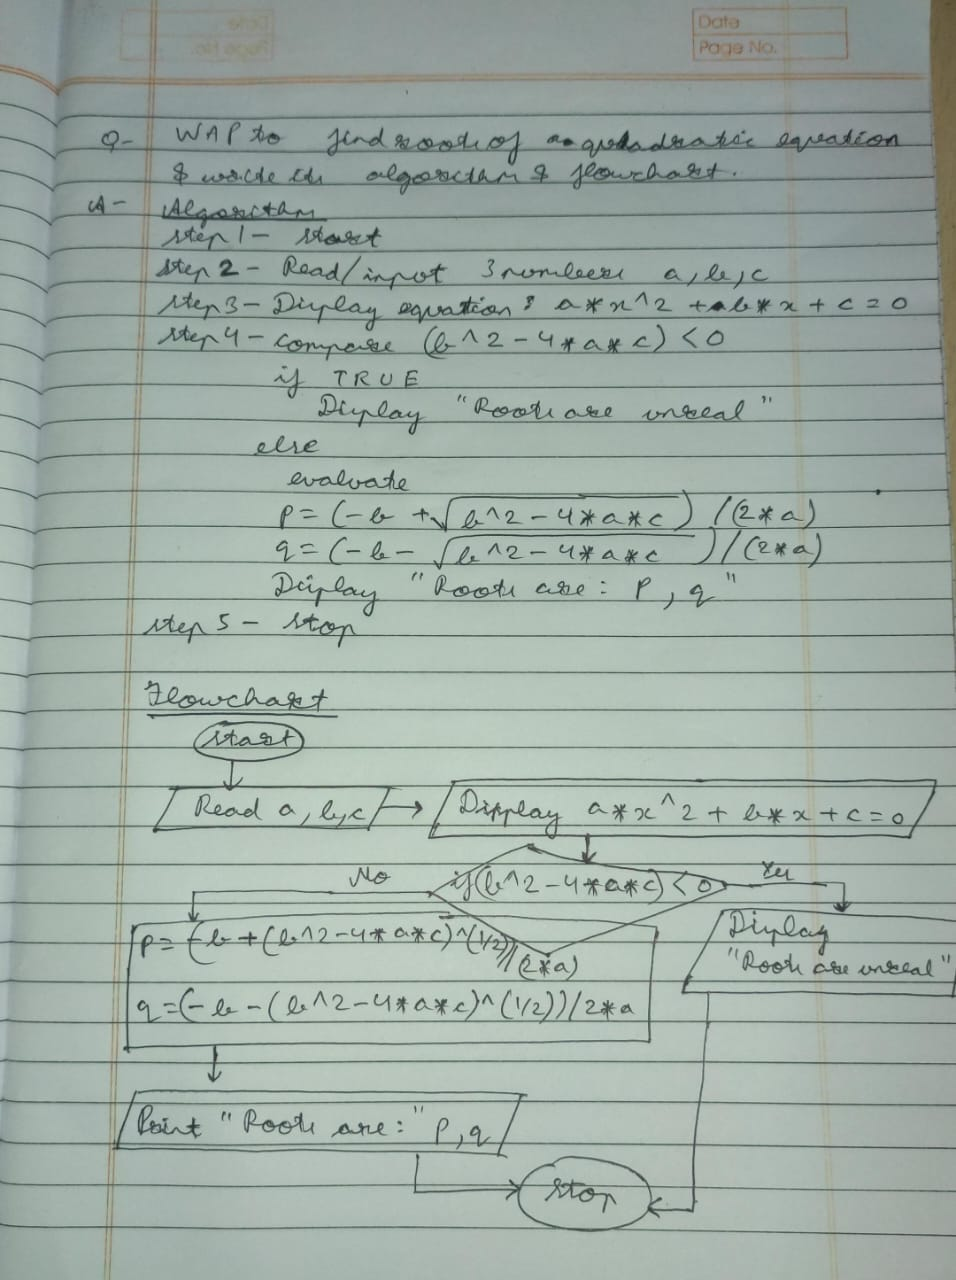 Date
Page No.
Q- WAP to find roots of a quadratic equation
& write its algorithm & flowchart.
A- Algorithm
Step 1 - Start
Step 2 - Read/input 3 numbers a, b, c
Step 3 - Display equation: a*x^2 + b*x + c = 0
Step 4 - compare (b^2 - 4*a*c) < 0
if TRUE
Display "Roots are unreal"
else
evaluate
p = (-b + √b^2 - 4*a*c) /(2*a)
q = (-b - √b^2 - 4*a*c )/(2*a)
Display "Roots are: p, q"
Step 5 - Stop
Flowchart
Start
Read a, b, c
Display a*x^2 + b*x + c = 0
if (b^2 - 4*a*c) < 0
No
Yes
p = (-b + (b^2 - 4*a*c)^(1/2))/(2*a)
q = (-b - (b^2 - 4*a*c)^(1/2))/2*a
Display
"Roots are unreal"
Print "Roots are:" p, q
Stop